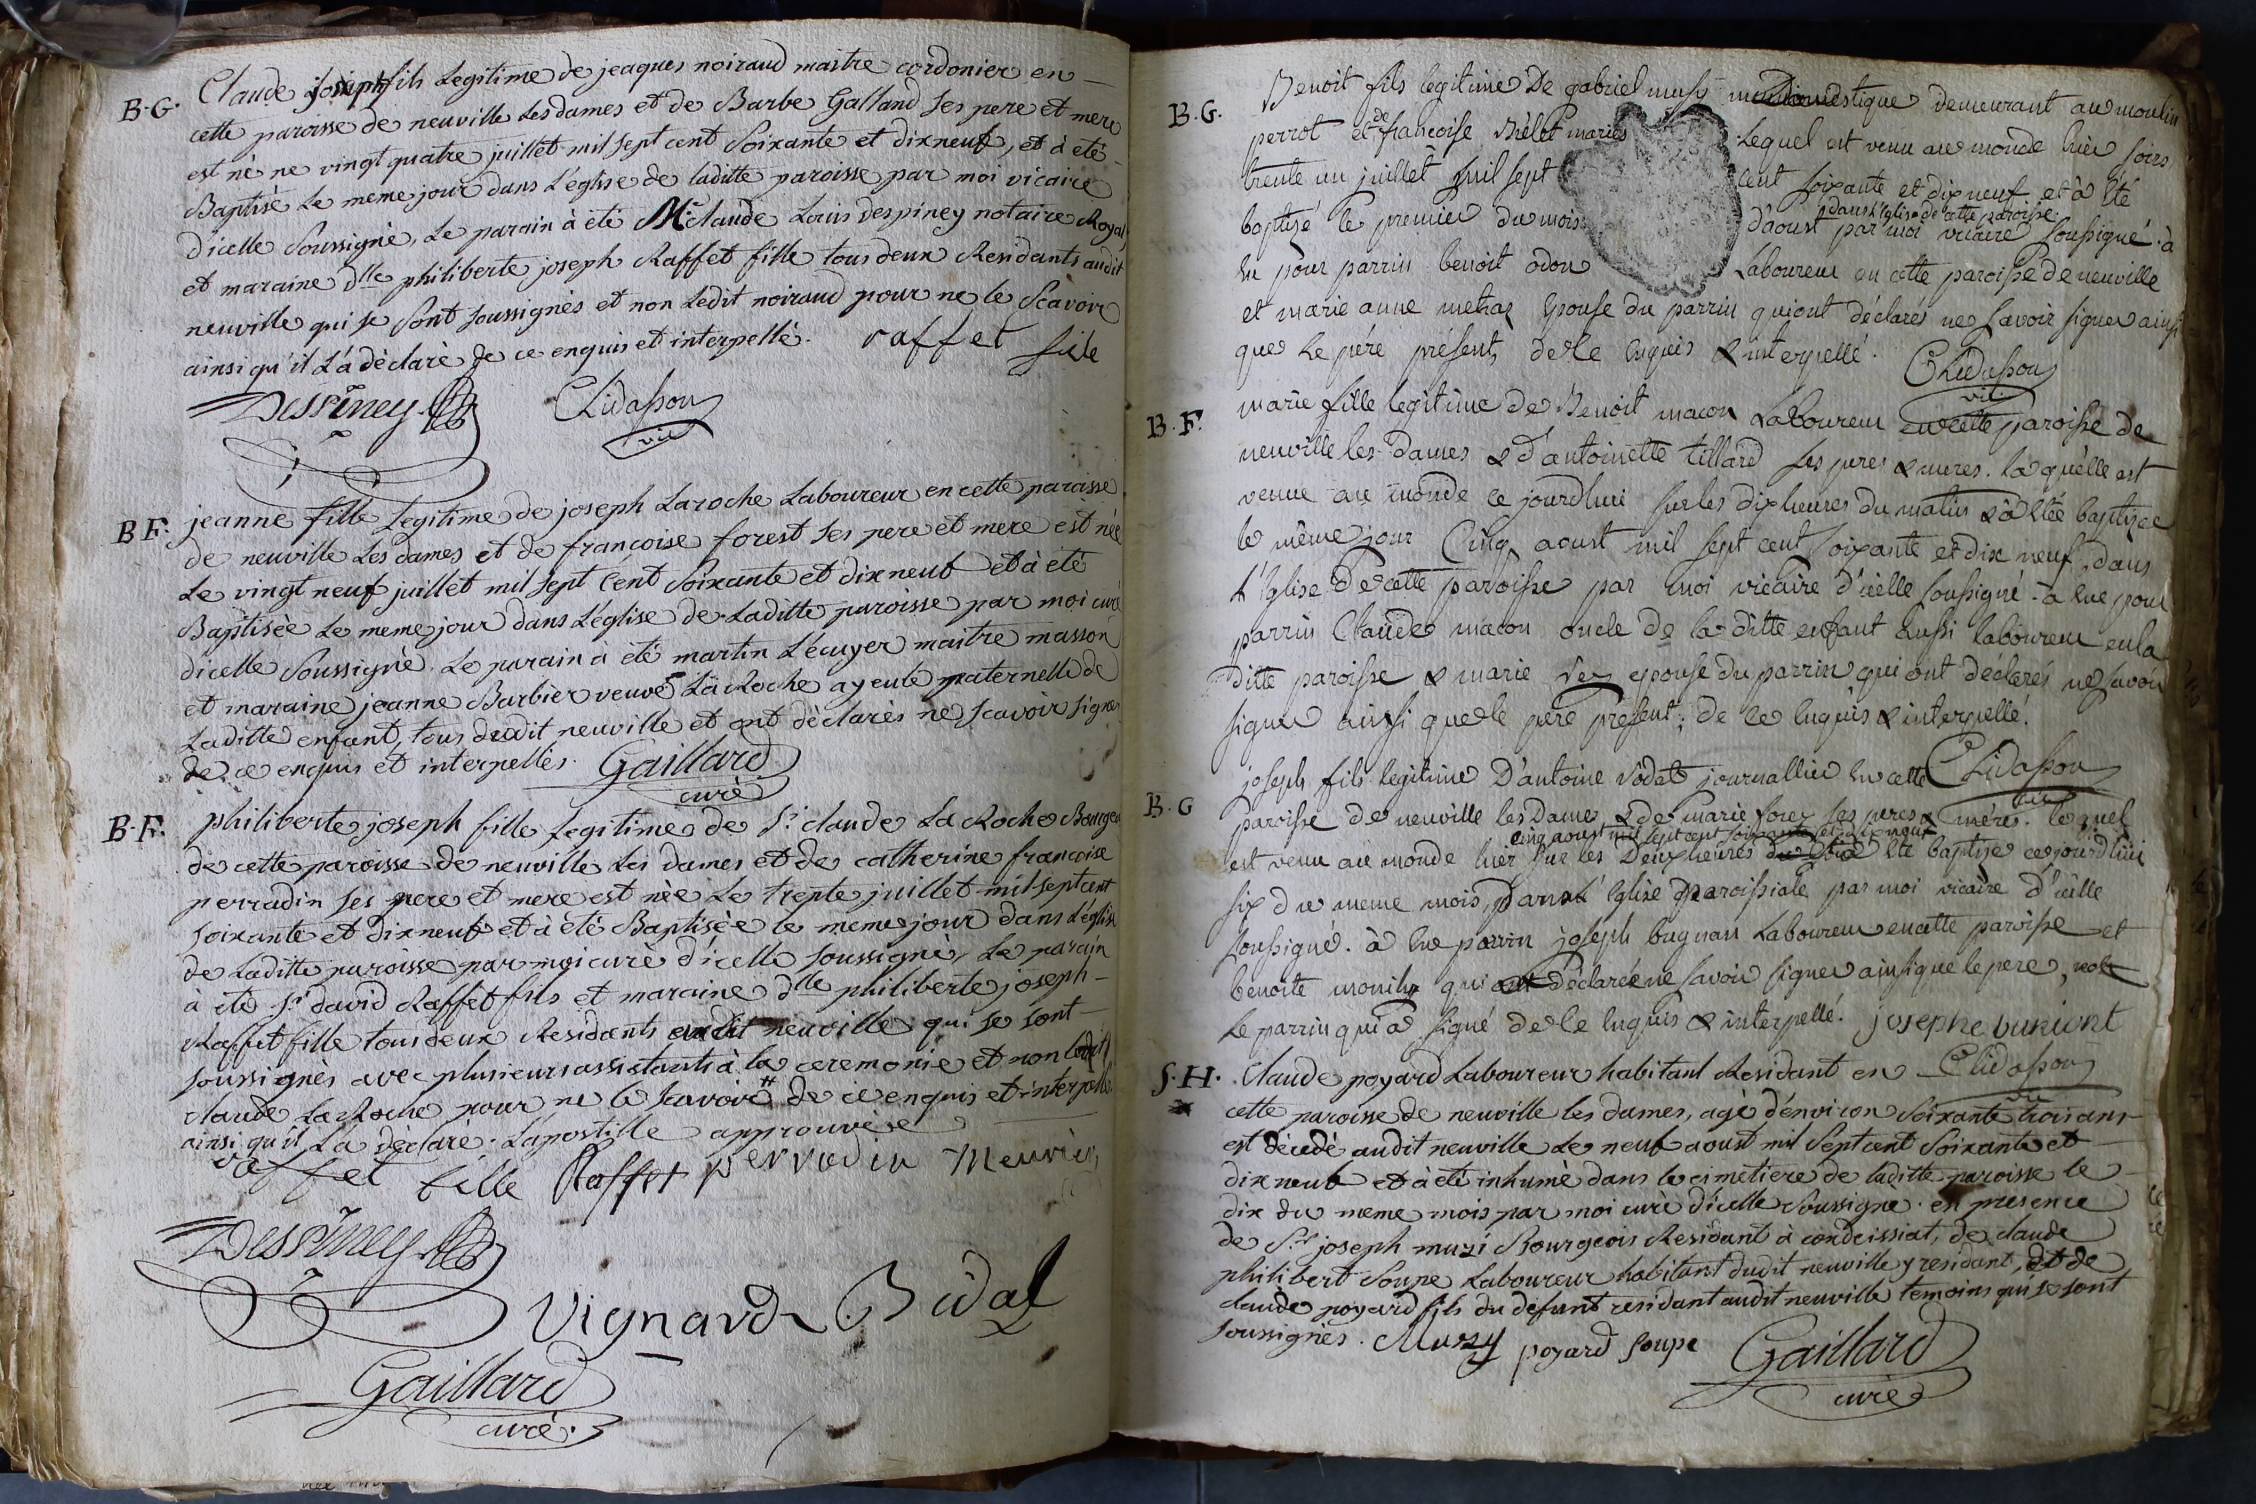 B.G. Claude joseph fils Legitime de jeaques noiraud maitre cordonier en
cette paroisse de neuville les dames et de Barbe Galland ses pere et mere
est né ne vingt quatre juillet mil sept cent soixante et dixneuf, et à été
Baptisé Le meme jour dans L'église de laditte paroisse par moi vicaire
d'icelle soussigné, Le parain à été Mr. claude Louis despiney notaire Royal
et maraine dlle philiberte joseph Raffet fille tous deux Residants audit
neuville qui se sont soussignés et non Ledit noiraud pour ne le scavoir
ainsi qu'il L'a déclaré de ce enquis et interpellé. raffet fille
Despiney Chidasson
vic
B F. jeanne fille Legitime de joseph Laroche Laboureur en cette paroisse
de neuville Les dames et de francoise forest ses pere et mere est née
Le vingt neuf juillet mil sept cent soixante et dixneuf et à été
Baptisée Le meme jour dans L'église de Laditte paroisse par moi curé
dicelle soussigné. Le parain à été martin L'écuyer maitre masson
et maraine jeanne Barbier veuve La Roche ayeule paternelle de
Laditte enfant, tous dudit neuville et ont déclarés ne scavoir signer
de ce enquis et interpellés. Gaillard
curé
B.F. philiberte joseph fille Legitime de Sr. claude La Roche Bourgeois
de cette paroisse de neuville Les dames et de catherine francoise
perradin ses pere et mere est née Le trente juillet mil sept cent
soixante et dixneuf et à été Baptisée le meme jour dans L'église
de Laditte paroisse par moi curé d'icelle soussigné, Le parain
à été Sr david Raffet fils et maraine dlle philiberte joseph
Raffet fille tous deux Residants audit neuville qui se sont
soussignés avec plusieurs assistants à la ceremonie et non ledit
claude La Roche pour ne le scavoir # de ce enquis et interpellé
ainsi qu'il La déclaré. L'apostille approuvée
raffet fille Raffet perradin Meuvier
Despiney
Vignard Bidal
Gaillard
curé.
B.G. Benoit fils legitime De gabriel domestique demeurant au moulin
perrot et de francoise mariés Lequel est venu au monde hier soirs
trente un juillet mil sept cent soixante et dix neuf et à été
dans l'Eglise de cette paroisse
baptisé le premier du mois d'aoust par moi vicaire soussigné. à
eu pour parrin benoit odon Laboureur en cette paroisse de neuville
et marie anne metraz Epouse du parrin qui ont déclarés ne savoir signer ainsi
que Le pére présent, de ce enquis & interpellé. Chidasson
vic.
B.F. marie fille legitime de Benoit macon Laboureur en cette paroisse de
neuville les dames & d'antoinette tillard ses peres & meres. laquelle est
venue au monde ce jourdhui sur les dix heures du matin & à été baptizee
le même jour Cinq aoust mil sept cent soixante et dix neuf, dans
L'Eglise de cette paroisse par moi vicaire d'icelle soussigné - à eue pour
parrin Claude macon oncle de la ditte enfant aussi laboureur en la
ditte paroisse & marie epouse du parrin qui ont declarés ne savoir
signer ainsi que le pere present; de ce enquis & interpellé.
Chidasson
vic
B.G joseph fils legitime D'antoine Vodat journallier en cette
paroisse de neuville les Dames & de marie forez ses peres & méres. lequel
cinq aoust mil sept cent soixante et dix neuf
est venu au monde hier sur les Deux heures été baptize ce jourd'hui
six du meme mois, Dans L'Eglise paroissiale par moi vicaire d'icelle
soussigné. à eue parrin joseph bugnan Laboureur en cette paroisse et
benoite qui déclarée ne savoir signer ainsi que le pere, non
Le parrin qui a signé de ce enquis & interpellé. josephe buniont
Chidasson
vic
S.H. Claude poyard Laboureur habitant Residant en
cette paroisse de neuville les dames, agé d'environ soixante trois ans
est décédé audit neuville Le neuf aoust mil sept cent soixante et
dix neuf et à été inhumé dans le cimetiere de laditte paroisse le
dix du meme mois par moi curé d'icelle soussigné. en presence
de Sr. joseph muzi Bourgeois Residant à condeissiat, de claude
philibert soupe Laboureur habitant dudit neuville y residant, et de
claude poyard fils du défunt residant audit neuville temoins qui se sont
soussignés. Muzy poyard soupe Gaillard
curé